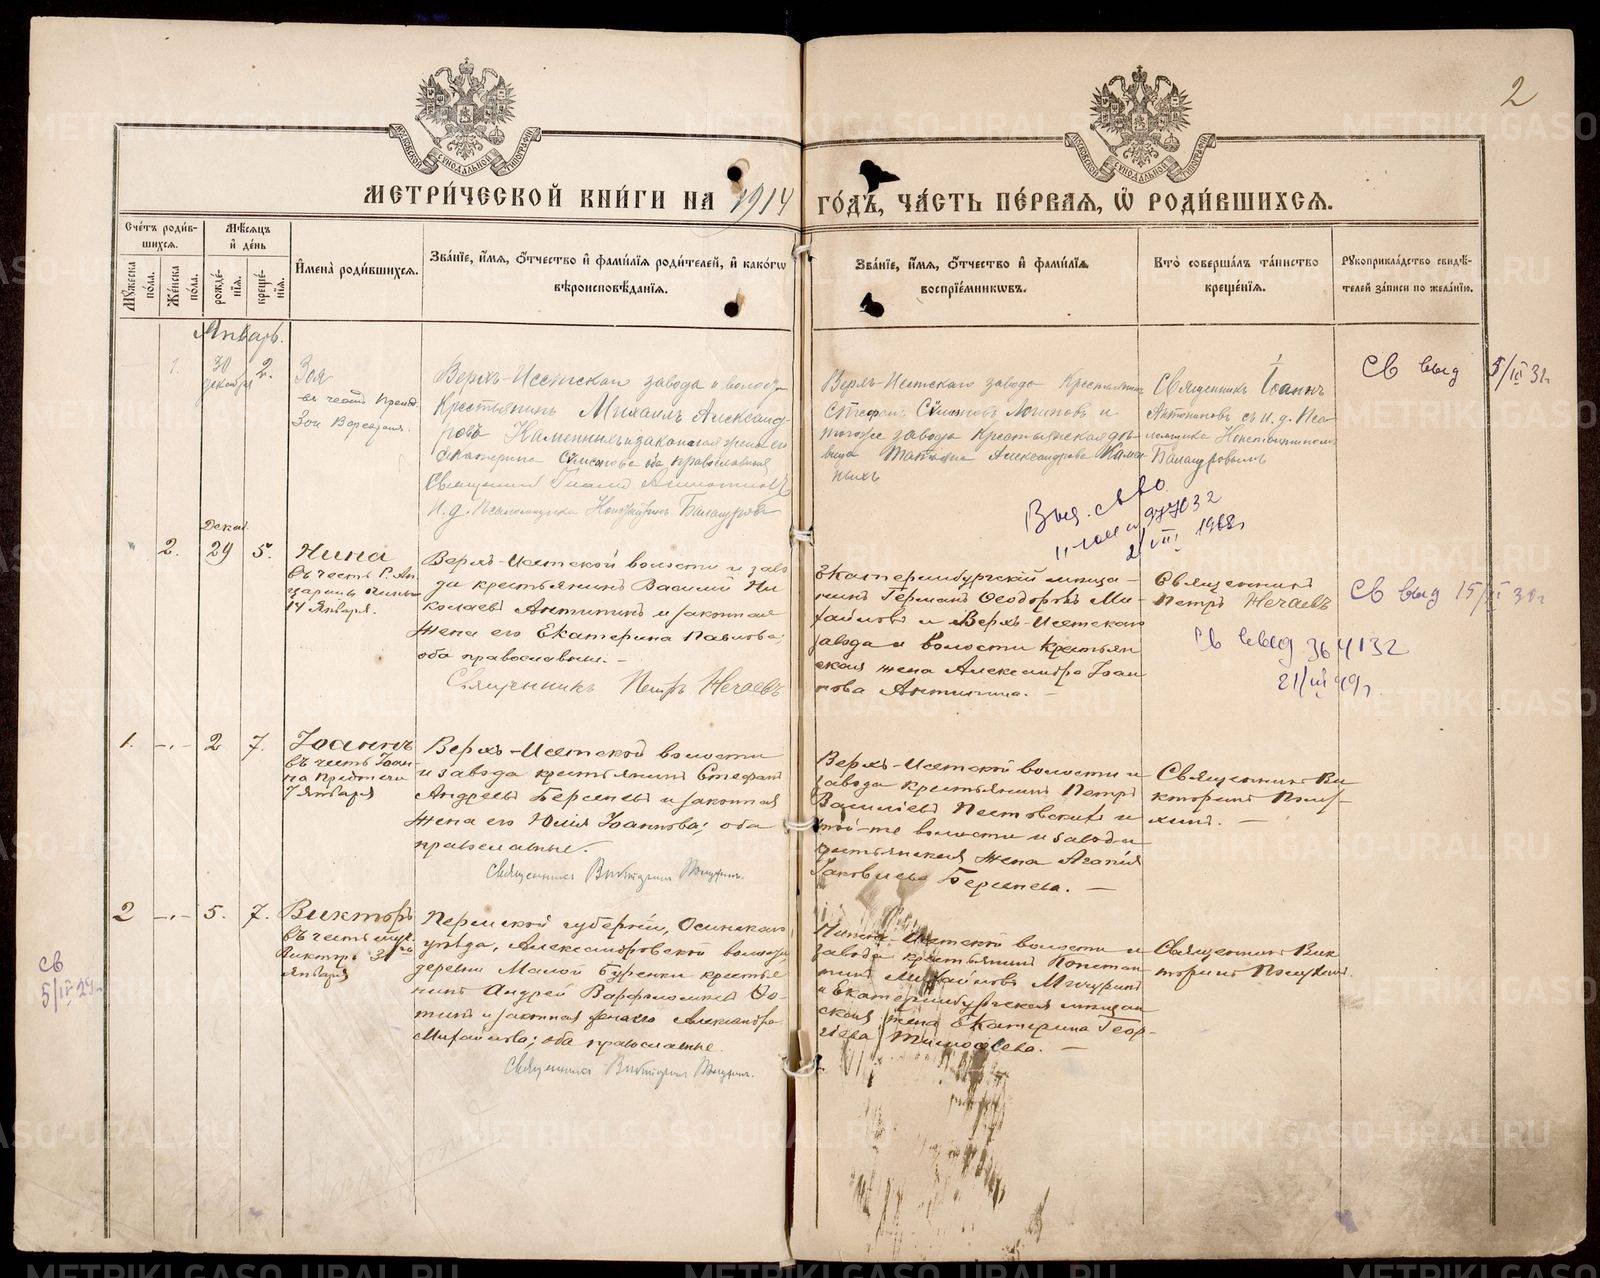 2
МОСКОВСКОЙ СѴНОДАЛЬНОЙ ТИПОГРАФІИ
МОСКОВСКОЙ СѴНОДАЛЬНОЙ ТИПОГРАФІИ
МЕТРИ́ЧЕСКОЙ КНИ́ГИ НА 1914 ГО́ДЪ, ЧА́СТЬ ПЕ́РВАЯ, Ѡ҆ РОДИ́ВШИХСЯ.
Сче́тъ роди́в-
шихся.
Мѣ́сяцъ
и҆ де́нь
Мꙋ́жеска
по́ла.
Же́нска
по́ла.
рожде́-
нїя.
креще́-
нїя.
И҆мена̀ роди́вшихся.
Зва́нїе, и҆́мя, ѻ҆́тчество и҆ фами́лїя роди́телей, и҆ како́гѡ
вѣроисповѣ́данїя.
Зва́нїе, и҆́мя, ѻ҆́тчество и҆ фами́лїя
воспрїе́мникѡвъ.
Кто̀ соверша́лъ та́инство
креще́нїя.
Рꙋкоприкла́дство свидѣ́-
телей за́писи по жела́нїю.
Январь.
1.
30
декабря
2.
Зоя
въ честь Препод.
Зои
Верхъ-Исетскаго завода и волости
Крестьянинъ Михаилъ Александ-
ровъ Каменныхъ и законная жена его
Екатерина Симонова оба православныя
Священникъ Іоаннъ Антониновъ
И. д. Псаломщика Константинъ Балашуровъ
Верхъ-Исетскаго завода Крестьянинъ
Стефанъ Симоновъ Логиновъ и
того же завода Крестьянская дѣ-
вица Александрова Камен-
ныхъ
Священникъ Іоаннъ
Антониновъ съ И. д. Пса-
ломщика Константиномъ
Балашуровымъ
Св выд 5/IX 31г
Выд. св-во
977032
2/VIII 1968г
2.
Декаб.
29
5.
Нина
въ честь Р. Ап.
царицы Нины
14 Января.
Верхъ-Исетской волости и заво
да крестьянинъ Василій Ни
колаевъ Антипинъ и законная
жена его Екатерина Павлова;
оба православные. –
Священникъ Петръ Нечаевъ
Екатеринбургскій мѣща-
нинъ Германъ Ѳеодоровъ Ми-
хайловъ и Верхъ-Исетскаго
завода и волости крестьян
ская жена Александра Іоан
нова Антипина. –
Священникъ
Петръ Нечаевъ
Св выд 15/II 30г
Св выд 364132
21/III 49г
1.
-"-
2
7.
Іоаннъ
въ честь Іоан-
на Предтечи
7 Января
Верхъ-Исетской волости
и завода крестьянинъ Стефанъ
Андреевъ Берсеневъ и законная
жена его Юлія Іоаннова; оба
православные.
Священникъ Викторинъ
Верхъ-Исетской волости и
завода крестьянинъ Петръ
Васильевъ Пестовскихъ и
той-же волости и завода
крестьянская жена Агапія
Іаковлева Берсенева. –
Священникъ Ви-
кторинъ
2
-"-
5.
7.
Викторъ
въ честь муч.
Виктора 31го
Января
Пермской губерніи, Осинскаго
уѣзда, Александровской волости,
деревни Малой Буренки крестья
нинъ Андрей Варфоломеевъ Фо-
тинъ и законная жена его Александра
Михайлова; оба православные.
Священникъ Викторинъ
Исетской волости и
завода крестьянинъ Констан
тинъ Михайловъ Мичуринъ
и Екатеринбургская мѣщан
ская жена Екатерина Геор-
гіева Тимоѳеева. –
Священникъ Вик
торинъ
Св
5/IV 29г